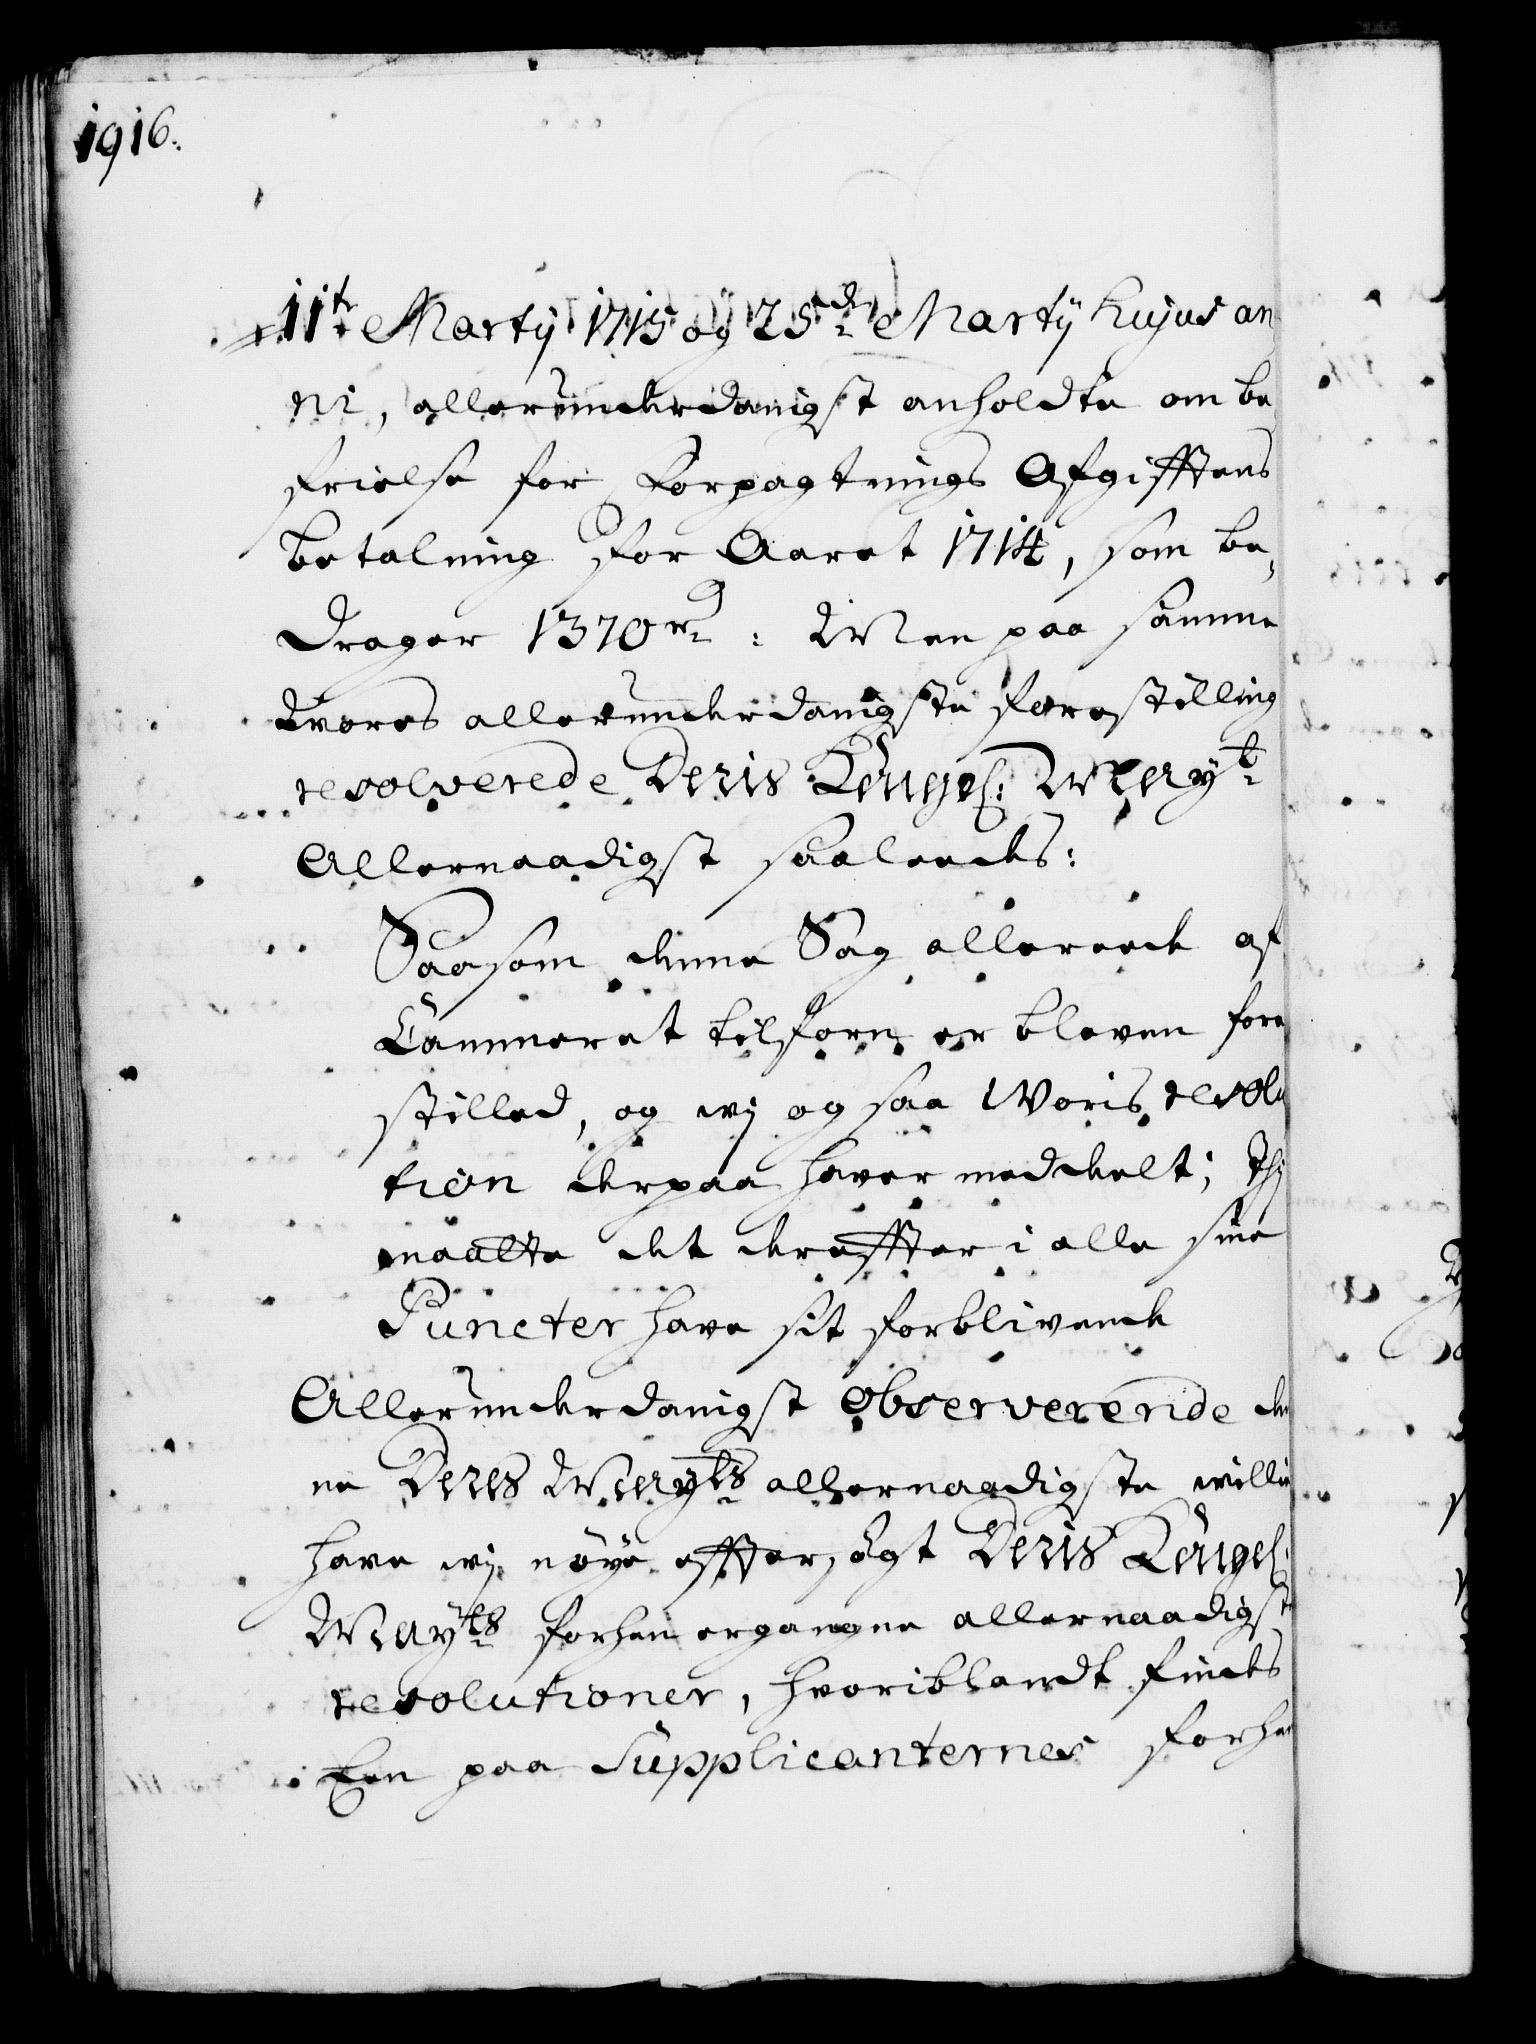 1916.
11te Martij 1715 og 25de Martij hujus an
ni, allerunderdanigst anholdte om be
frielse for Forpagtnings Afgifftens
betalning for Aaret 1714, som be,
drager 1370 rd: Men paa samme
Vores allerunderdanigste forestilling
resolverede Deris Kongel: Mayt
Allernaadigst saaleedes:
Saasom denne Sag allereede af
Cammeret tilforn er bleven fore
stilled, og wj og saa Woris resolu
tion derpaa haver meddeelt; Thj
maatte det dereffter i alle sine
Puncter have sit forblivende
Allerunderdanigst observerende den
ne Deris Mayts allernaadigste willie
have wj nøye effter,søgt Deris Kongel:
Mayts forhen ergangne allernaadigste
resolutioner, hvoriblandt findes
Een paa Supplicanternes forhen